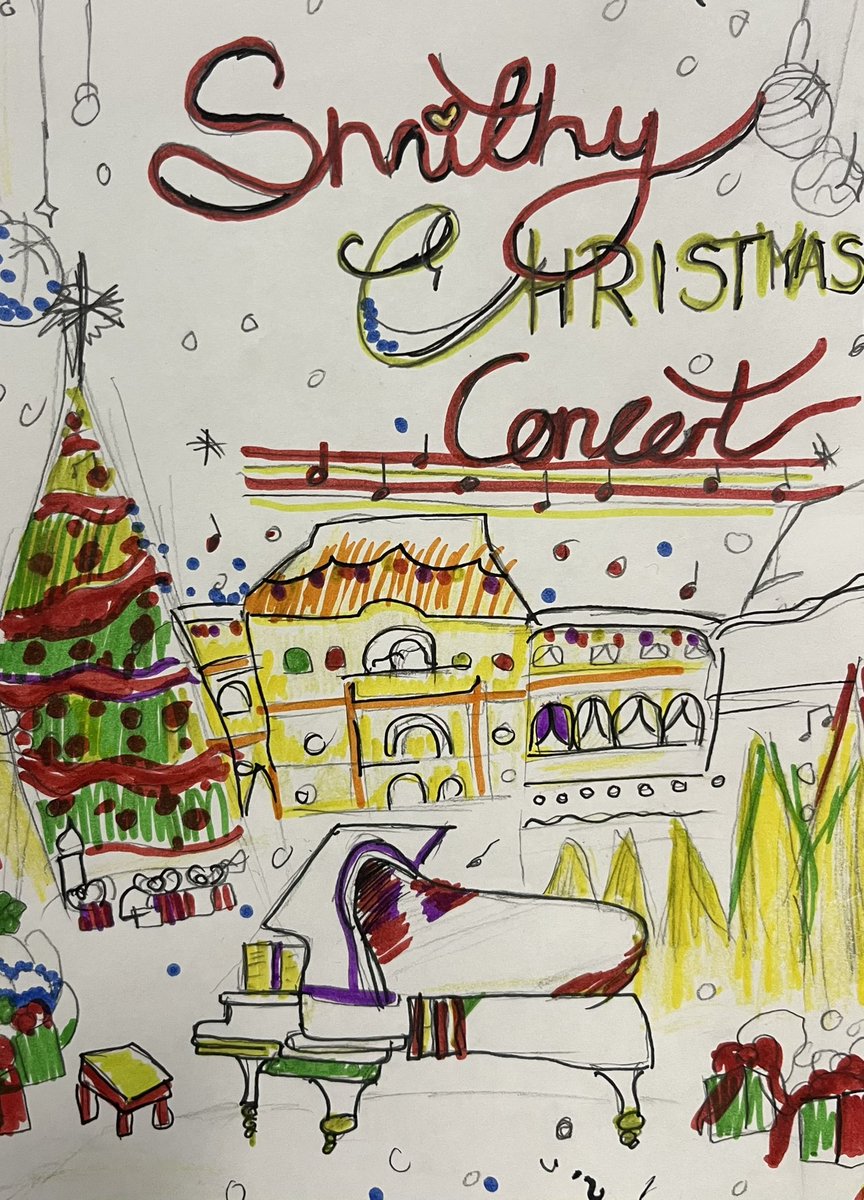 Smithy
CHRISTMAS
Concert